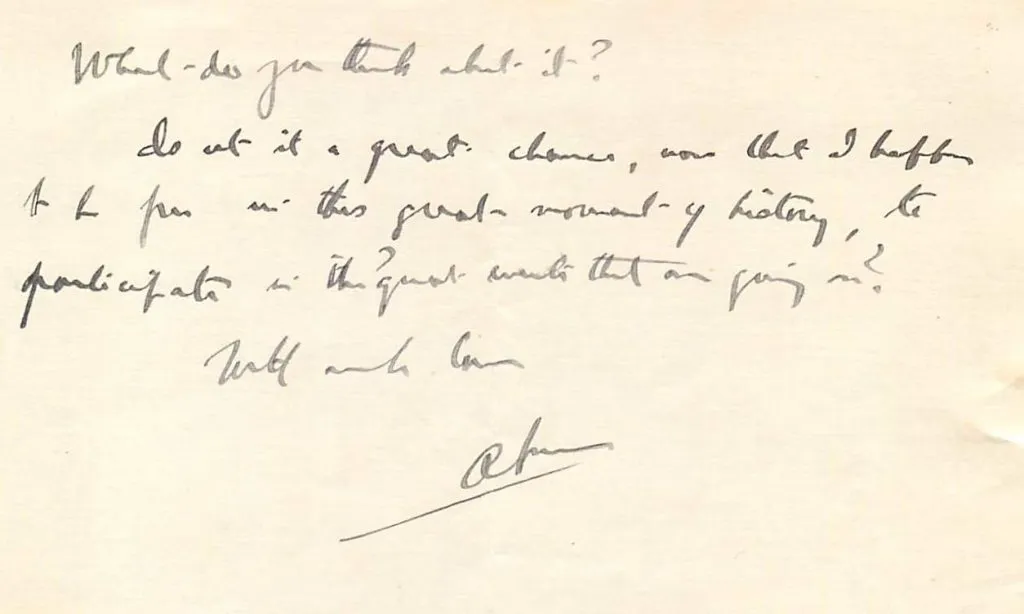 What do you think about it?
Is it a great chance, now that I happen
to be free in this great moment of history, to
participate in the great events that are going on?
With much love